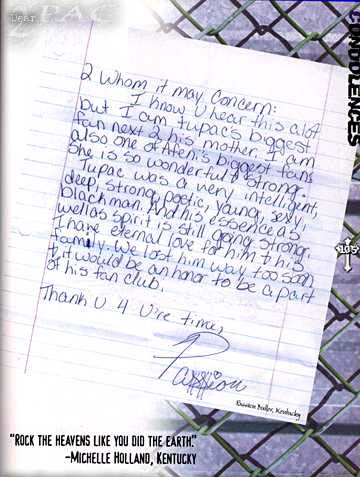 Dear PAC
CONDOLENCES
2 Whom it may concern:
I know U hear this alot
but I am tupac's biggest
fan next 2 his mother. I am
also one of Afeni's biggest fans
She is so wonderful & strong.
Tupac was a very intelligent,
deep, strong, poetic, young, sexy,
blackman. And his essence as
wellas spirit is still going strong.
I have eternal love for him & his
family. We lost him way too soon
& it would be an honor to be a part
of his fan club.
Thank U 4 Ure time,
Passion
Kentucky
"ROCK THE HEAVENS LIKE YOU DID THE EARTH."
-MICHELLE HOLLAND, KENTUCKY